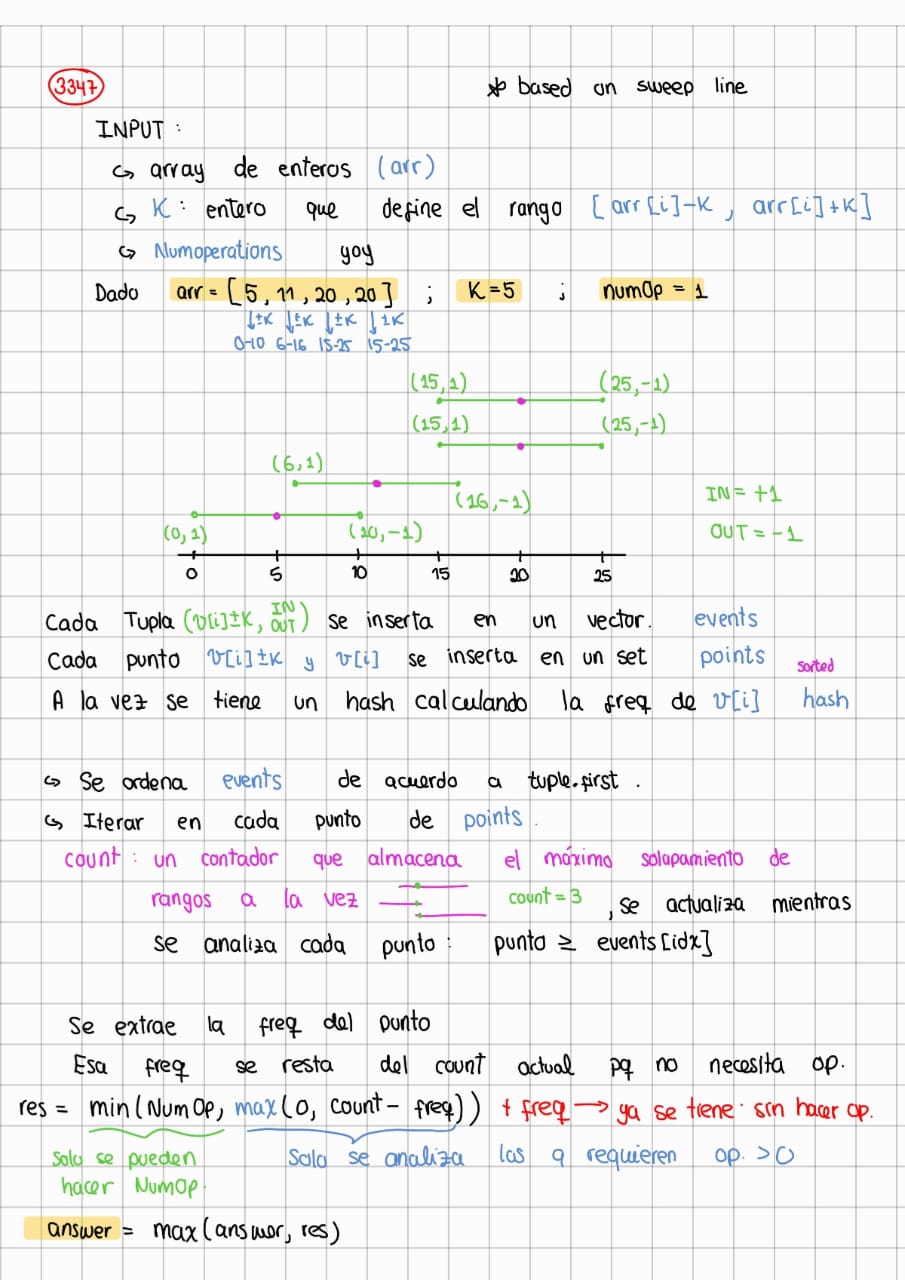 3347
* based on sweep line
INPUT :
↪ array de enteros (arr)
↪ K : entero que define el rango [arr[i]-K , arr[i]+K]
↪ Numoperations yoy
Dado arr = [5, 11, 20, 20] ; K=5 ; numOp = 1
↓±K ↓±K ↓±K ↓±K
0-10 6-16 15-25 15-25
(15,1) (25,-1)
(15,1) (25,-1)
(6,1) (16,-1)
IN = +1
(0,1) (10,-1)
OUT = -1
0 5 10 15 20 25
Cada Tupla (v[i]±K, IN OUT) se inserta en un vector. events
Cada punto v[i]±K y v[i] se inserta en un set points sorted
A la vez se tiene un hash calculando la freq de v[i] hash
↪ Se ordena events de acuerdo a tuple.first .
↪ Iterar en cada punto de points.
count : un contador que almacena el máximo solapamiento de
rangos a la vez count = 3 , se actualiza mientras
se analiza cada punto : punto ≥ events[idx]
Se extrae la freq del punto
Esa freq se resta del count actual pq no necesita op.
res = min(NumOp, max(0, count - freq)) + freq → ya se tiene sin hacer op.
Solo se pueden
hacer NumOp.
Solo se analiza los q requieren op. >0
answer = max(answer, res)